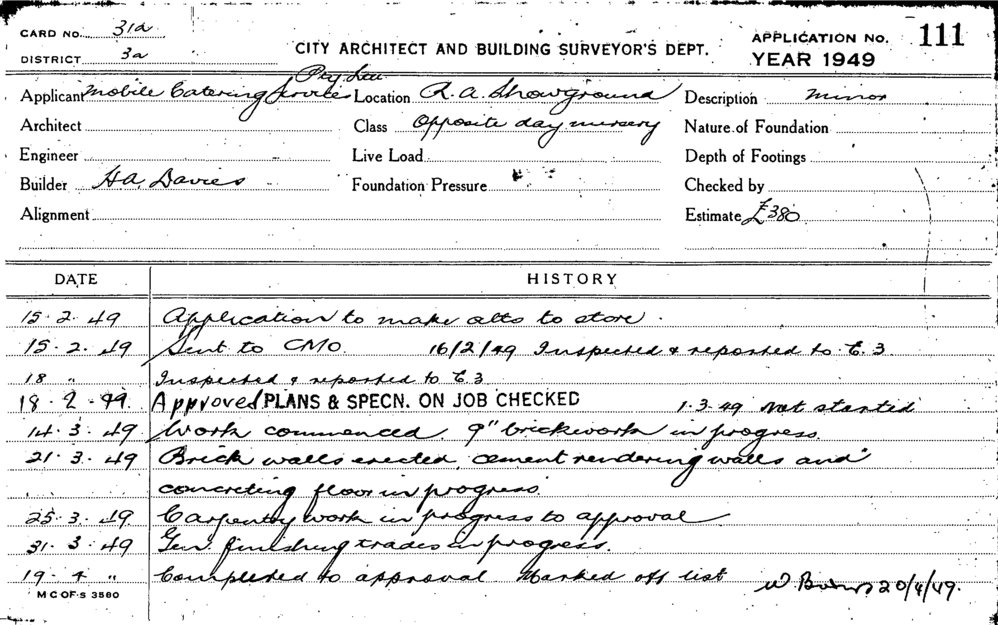 CARD No. 31a
DISTRICT 3a
CITY ARCHITECT AND BUILDING SURVEYOR'S DEPT.
APPLICATION No. 111
YEAR 1949
Pty. Ltd
Applicant Mobile Catering Services Location R.A. Showground Description Minor
Architect Class Opposite day nursery Nature of Foundation
Engineer Live Load Depth of Footings
Builder H.A. Davies Foundation Pressure Checked by
Alignment Estimate £380
DATE HISTORY
15·2·49 Application to make alts to store.
15·2·49 Sent to CMO. 16/2/49 Inspected & reported to E.3
18 " Inspected & reported to E.3
18·2·49. Approved PLANS & SPECN. ON JOB CHECKED 1·3·49 Not started
14·3·49 Work commenced. 9" brickwork in progress.
21·3·49 Brick walls erected, cement rendering walls and
concreting floor in progress.
25·3·49. Carpentry work in progress to approval
31·3·49 Gen. finishing trades in progress.
19·4 " Completed to approval Marked off list
W. 20/4/49.
M C OF·S 3580